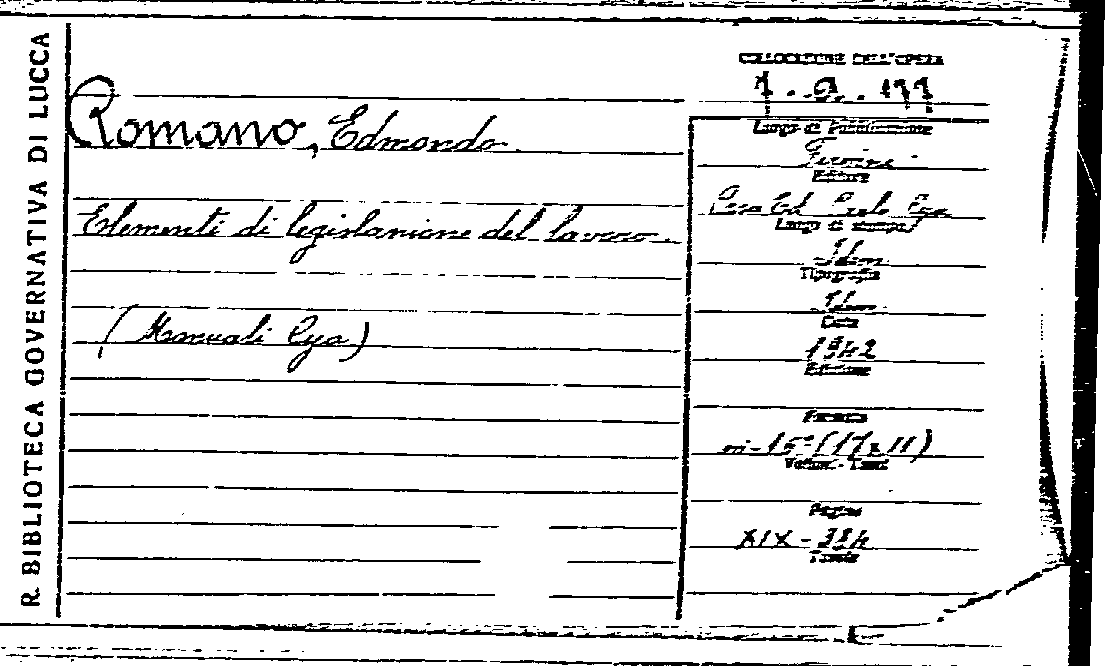 R. BIBLIOTECA GOVERNATIVA DI LUCCA
Romano, Edmondo.
Elementi di legislazione del lavoro.
(Manuali Cya)
COLLOCAZIONE DELL'OPERA
Luogo di Pubblicazione
Firenze
Editore
Casa Ed. Carlo Cya
Luogo di stampa
Idem
Tipografia
Idem
Data
1942
Edizione
Formato
in-16° (17x11)
Volumi - Tomi
Pagine
XIX-384
Tavole